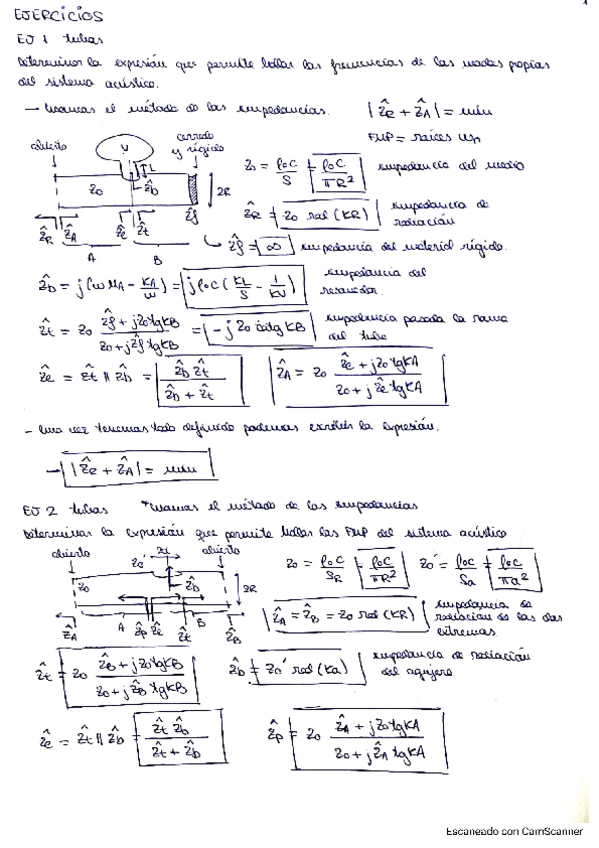 EJERCICIOS
EJ 1 tubos
Determinar la expresión que permite hallar las frecuencias de los modos propios
del sistema acústico.
- Usamos el método de las impedancias. |ẐR + ẐA| = mín
FMP = raíces
abierto V cerrado y rígido
L
Z0 ẐD 2R
Z0 = ρ0C/S = ρ0C/πR² impedancia del medio
ẐR = Z0 rad (KR) impedancia de radiación
ẐR ẐA Ẑe Ẑt Ẑf
A B
Ẑf = ∞ impedancia del material rígido.
ẐD = j(ωMA - KA/ω) = jρ0C(KL/S - 1/KV) impedancia del resonador
Ẑt = Z0 (Ẑf + jZ0tgKB)/(Z0 + jẐftgKB) = -jZ0 cotgKB impedancia pasada la rama del tubo
Ẑe = Ẑt || ẐD = ẐDẐt/(ẐD + Ẑt) ẐA = Z0 (Ẑe + jZ0tgKA)/(Z0 + jẐetgKA)
- Una vez tenemos todo definido podemos escribir la expresión.
→ |ẐR + ẐA| = mín
EJ 2 tubos *Usamos el método de las impedancias
Determinar la expresión que permite hallar las FMP del sistema acústico
abierto Z0' abierto
Z0 ẐD 2R
Z0 = ρ0C/SR = ρ0C/πR² Z0' = ρ0C/Sa = ρ0C/πa²
A B
ẐA Ẑp Ẑe Ẑt ẐB
ẐA = ẐB = Z0 rad (KR) impedancia de radiación de los dos extremos
Ẑt = Z0 (ẐB + jZ0tgKB)/(Z0 + jẐBtgKB) ẐD = Z0' rad (Ka) impedancia de radiación del agujero
Ẑe = Ẑt || ẐD = ẐtẐD/(Ẑt + ẐD) Ẑp = Z0 (ẐA + jZ0tgKA)/(Z0 + jẐAtgKA)
Escaneado con CamScanner